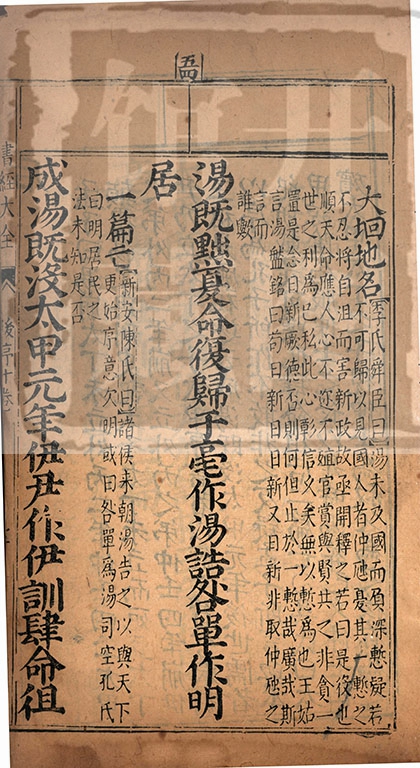 五四
大坰地名
李氏舜臣曰湯未及國而負深慙疑若
不可歸以見國人者仲虺憂其一慙之
不忍將自沮而害新政故亟開釋之若曰是役也
順天命應人心不迩不殖官賞與賢共之非貪一
世之利為己私此心彰信久矣無以慙為也王姑
置是念日新厥德否則何但止於一慙哉廣哉斯
言湯盤銘曰苟日新日日新又日新非取仲虺之
言而
誰歟
湯既黜夏命復歸于亳作湯誥咎單作明
居
一篇亡
新安陳氏曰諸侯來朝湯告之以與天下
更始序意欠明或曰咎單為湯司空孔氏
曰明居民之
法未知是否
成湯既沒太甲元年伊尹作伊訓肆命徂
書經大全